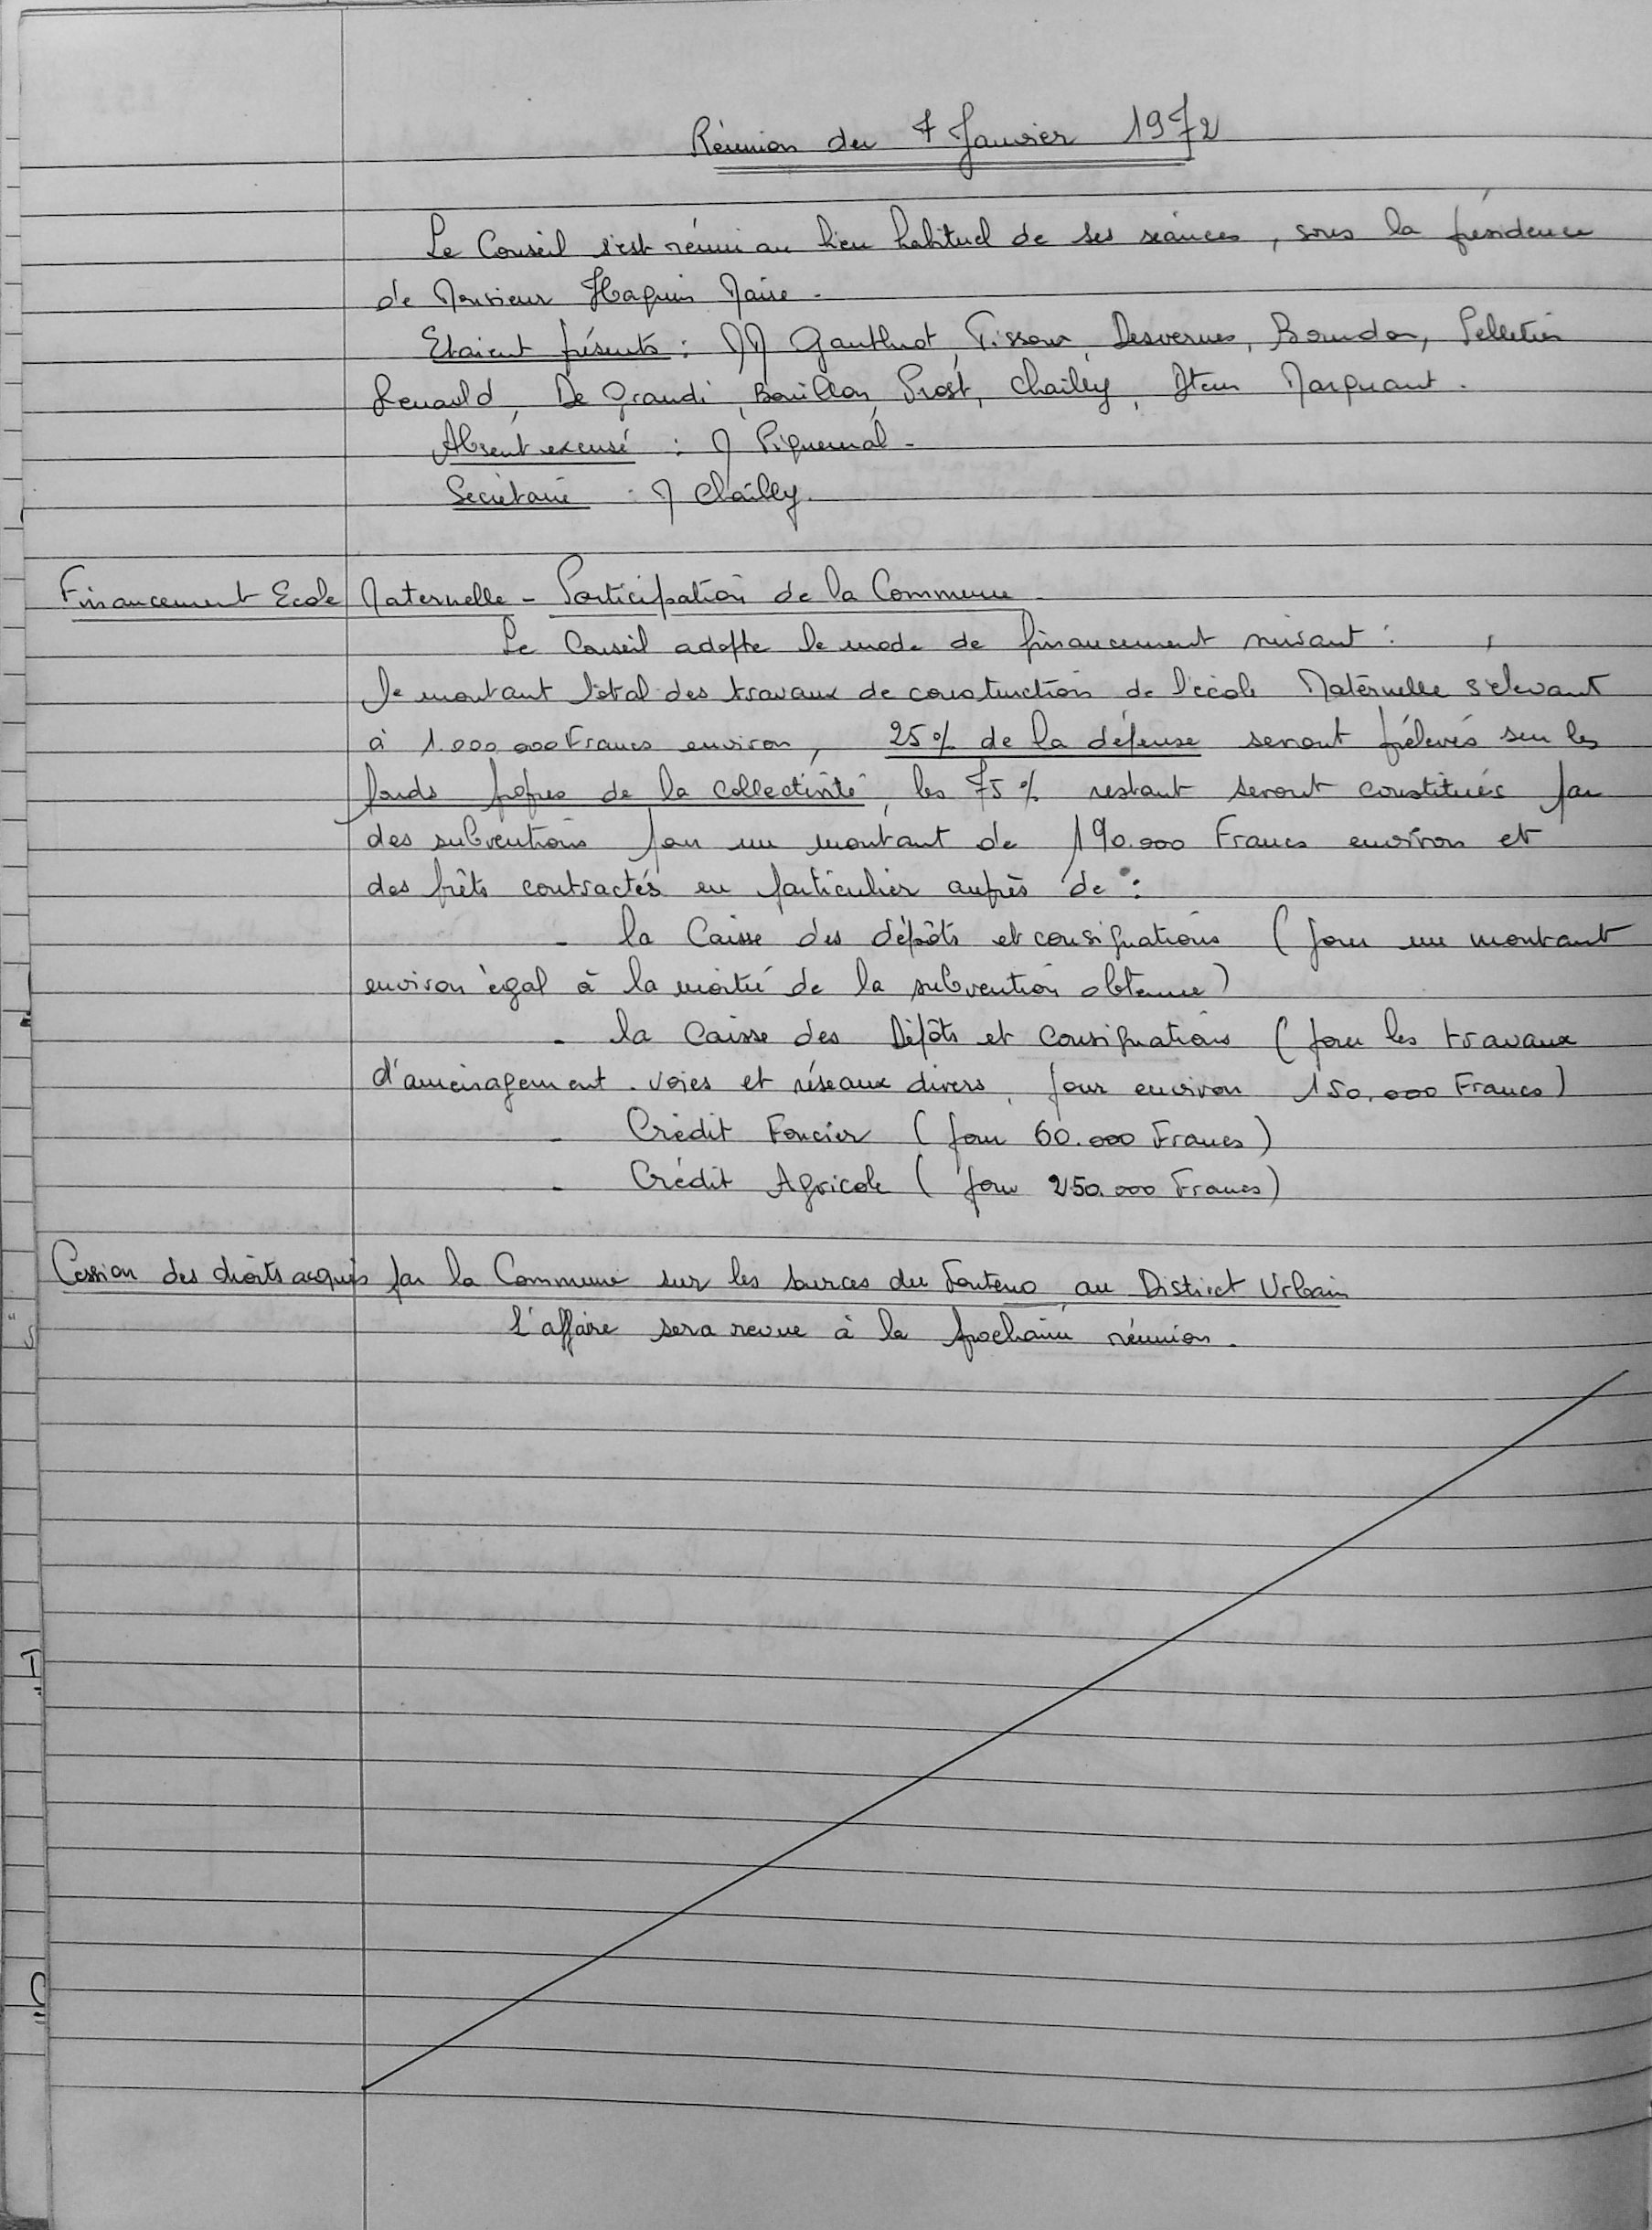 Réunion du 7 Janvier 1972
Le Conseil s'est réuni au lieu habituel de ses séances, sous la présidence
de Monsieur Haquin Maire.
Etaient présents : MM Gauthrot, Tissour, Desvernes, Bourdon, Pelletier
Renauld, De Grandi, Bouillon, Prost, Chailley, Marquant.
Absent excusé : M Piquemal.
Secrétaire : M Chailley.
Financement Ecole Maternelle - Participation de la Commune.
Le Conseil adopte le mode de financement suivant :
le montant total des travaux de construction de l'école Maternelle s'élevant
à 1.000.000 Francs environ, 25% de la dépense seront prélevés sur les
fonds propres de la collectivité, les 75% restant seront constitués par
des subventions pour un montant de 190.000 Francs environ et
des prêts contractés en particulier auprès de :
- la Caisse des dépôts et consignations (pour un montant
environ égal à la moitié de la subvention obtenue)
- la Caisse des Dépôts et Consignations (pour les travaux
d'aménagement. voies et réseaux divers, pour environ 150.000 Francs)
- Crédit Foncier (pour 60.000 Francs)
- Crédit Agricole (pour 250.000 Francs)
Cession des droits acquis par la Commune sur les sources du au District Urbain
L'affaire sera revue à la prochaine réunion.